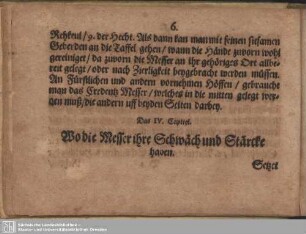 6.
Rehkeul / 9. der Hecht. Als dann kan man mit feinen sitsamen
Geberden an die Taffel gehen / wann die Hände zuvorn wohl
gereiniget / da zuvorn die Messer an ihr gehöriges Ort allbe-
reit gelegt / oder nach Zierligkeit beygebracht werden müssen.
An Fürstlichen und andern vornehmen Höffen / gebraucht
man das Credentz Messer / welches in die mitten gelegt wer-
den muß / die andern uff beyden Seiten darbey.
Das IV. Capitel.
Wo die Messer ihre Schwäch und Stärcke
haben.
Setzet